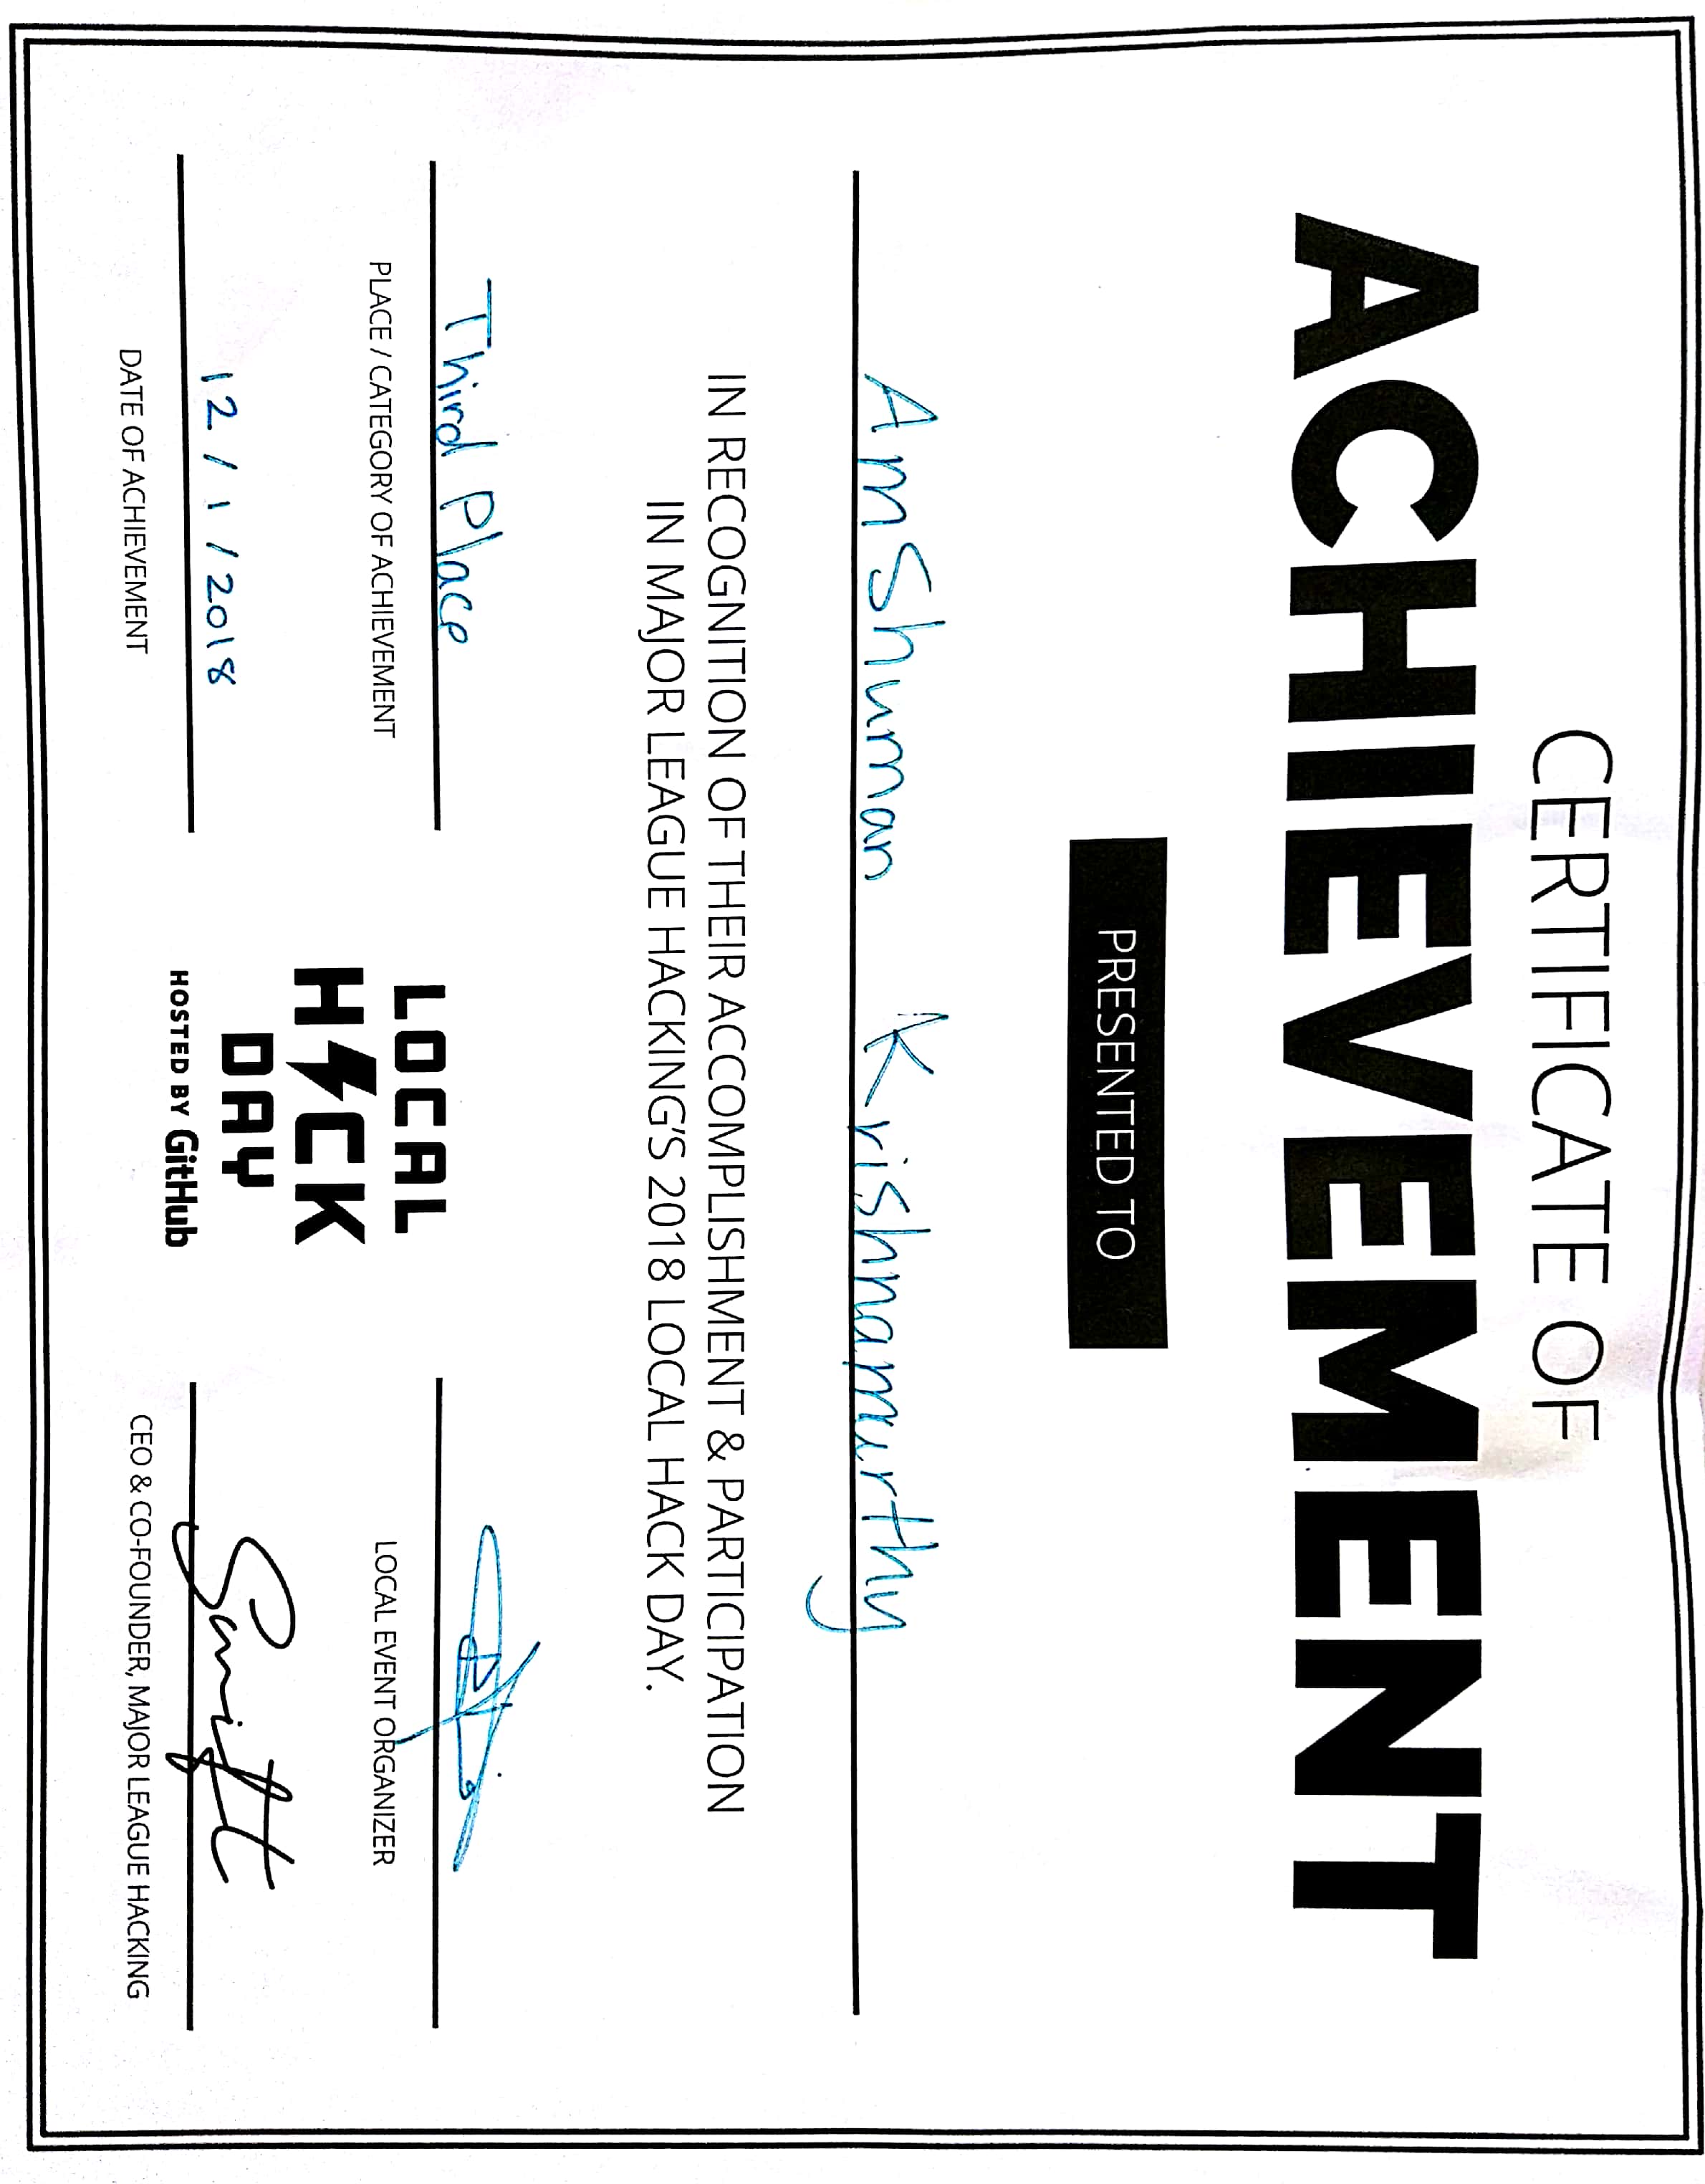 CERTIFICATE OF
ACHIEVEMENT
PRESENTED TO
AmShuman Krishnamurthy
IN RECOGNITION OF THEIR ACCOMPLISHMENT & PARTICIPATION
IN MAJOR LEAGUE HACKING'S 2018 LOCAL HACK DAY.
Third Place
PLACE / CATEGORY OF ACHIEVEMENT
LOCAL EVENT ORGANIZER
12/1/2018
DATE OF ACHIEVEMENT
LOCAL
HACK
DAY
HOSTED BY GitHub
Swift
CEO & CO-FOUNDER, MAJOR LEAGUE HACKING